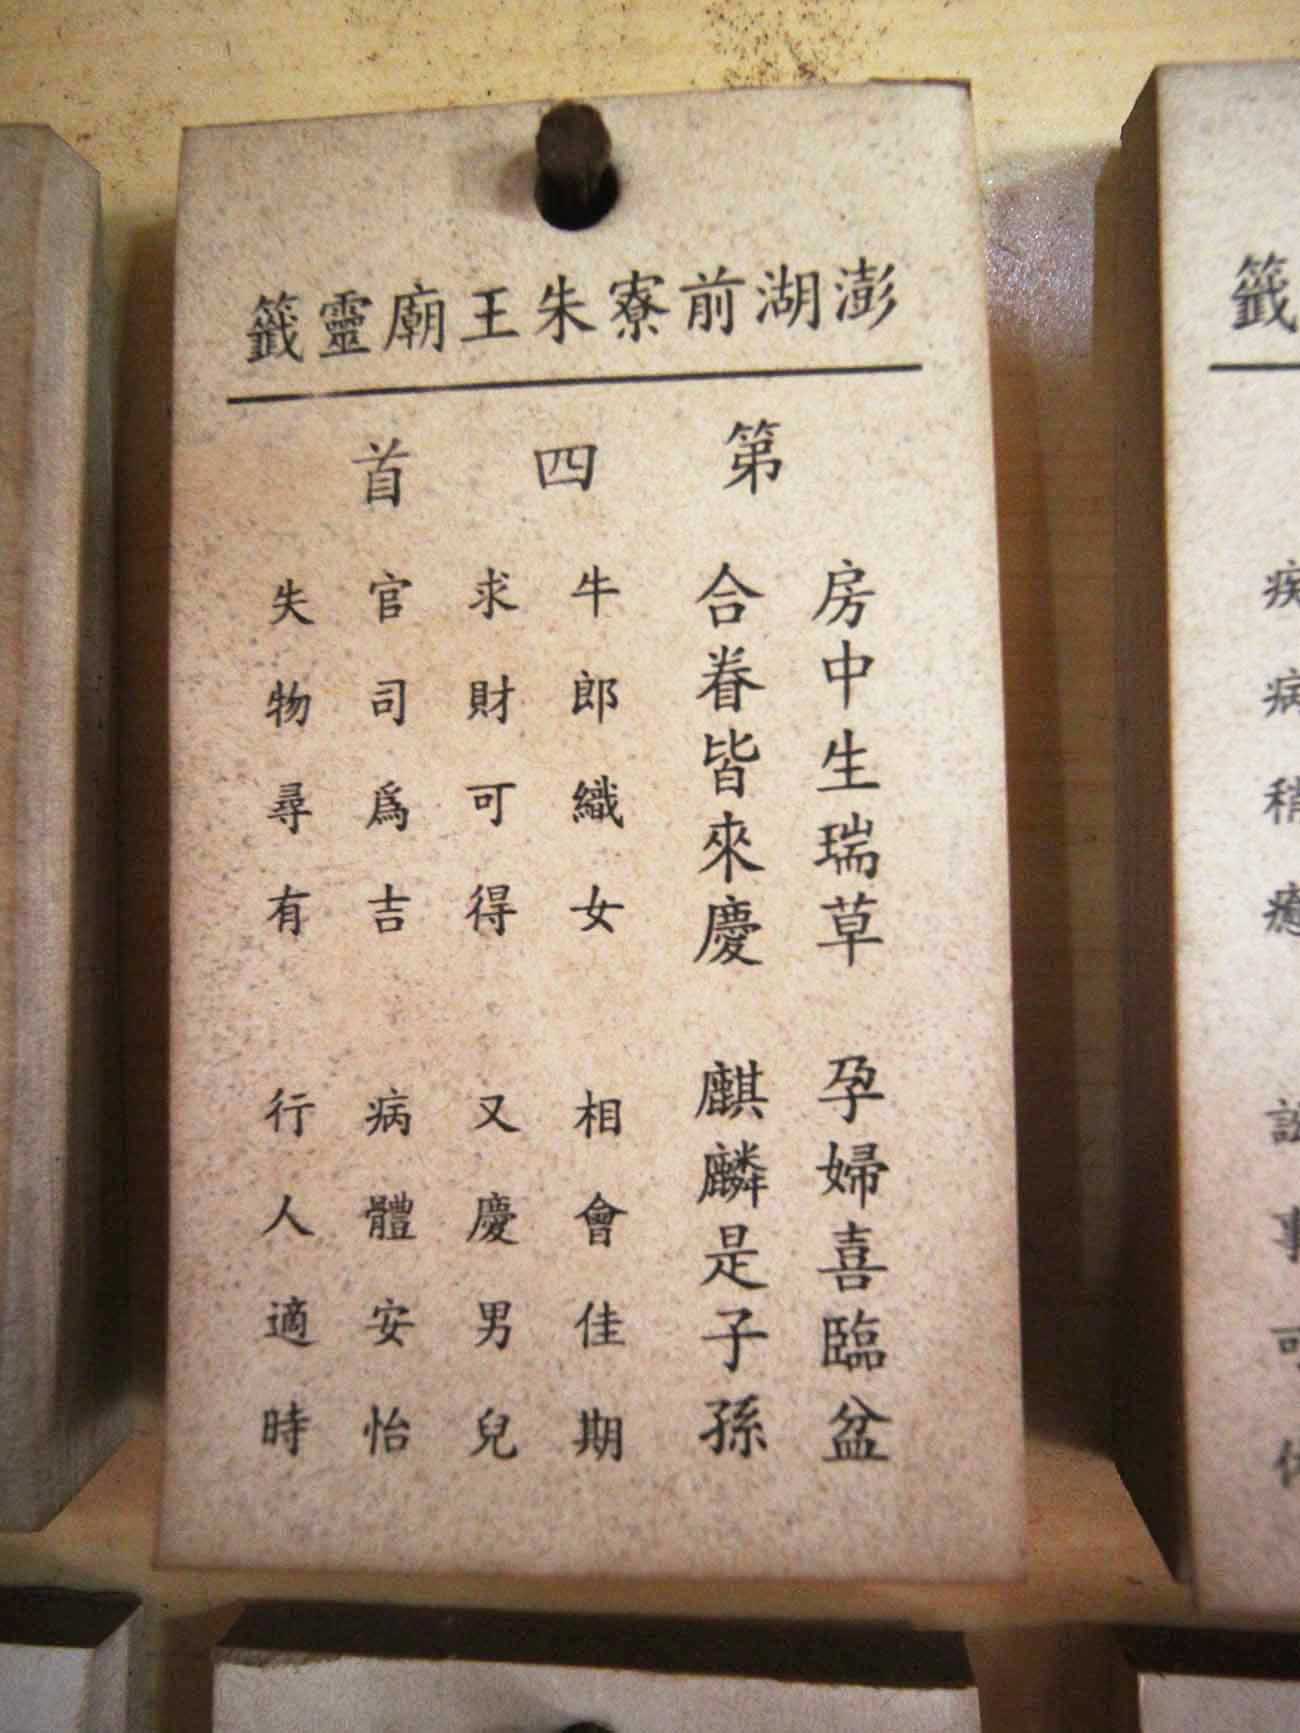 澎湖前寮朱王廟靈籤
第四首
房中生瑞草 孕婦喜臨盆
合眷皆來慶 麒麟是子孫
牛郎織女 相會佳期
求財可得 又慶男兒
官司為吉 病體安怡
失物尋有 行人適時
籤
疾病稍癒
事可